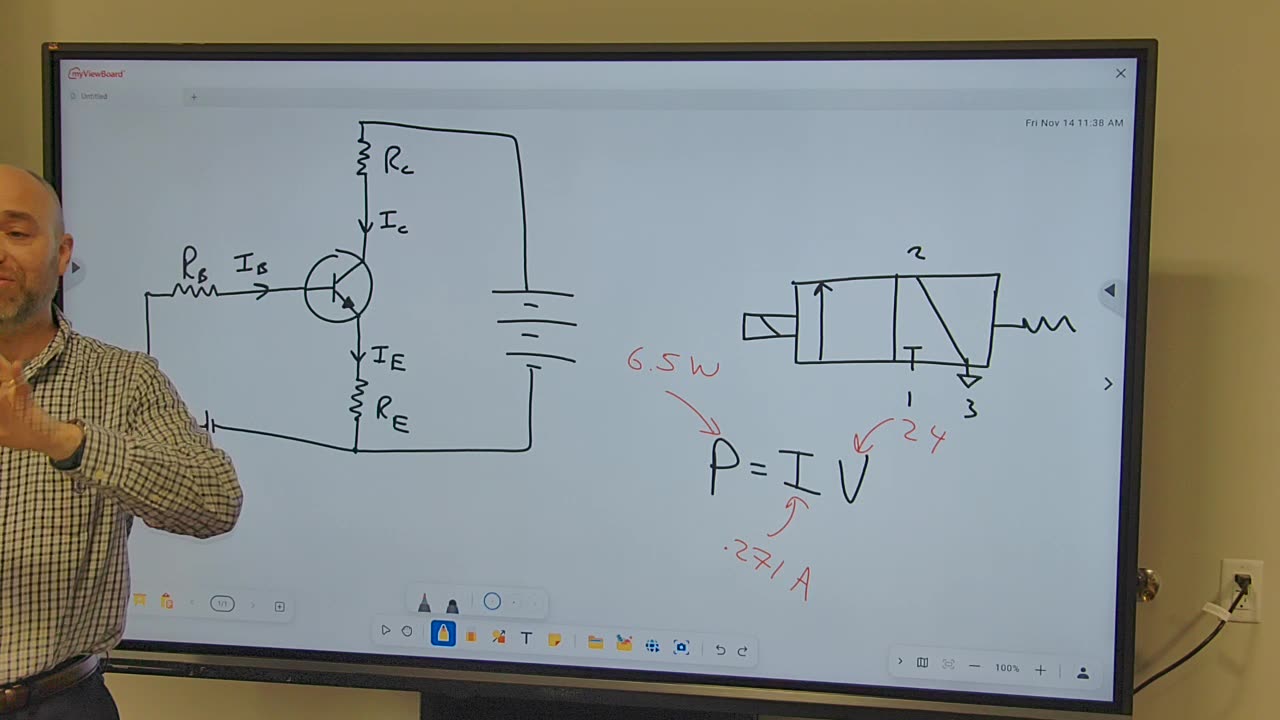 myViewBoard
Untitled
Fri Nov 14 11:38 AM
RC
IC
RB
IB
IE
RE
2
1
3
6.5 W
24
P = I V
.271 A
1/1
T
100%